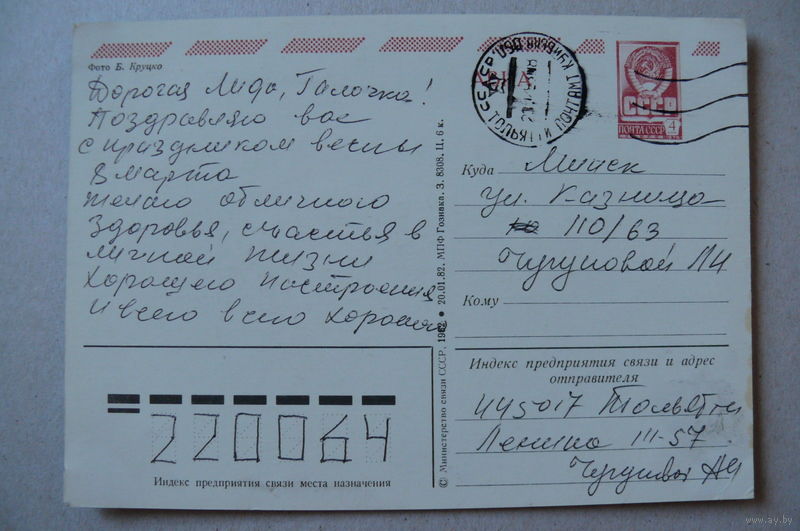 Фото Б. Круцко
Дорогая Лида, Галочка!
Поздравляю вас
с праздником весны
8 марта
желаю отличного
здоровья, счастья в
личной жизни
хорошего настроения
и всего всего хорошего
220064
Индекс предприятия связи места назначения
© Министерство связи СССР, 1982 • 20.01.82. МПФ Гознака. З. 8308. Ц. 6 к.
АВИА
СССР
ПОЧТА СССР 4
ТОЛЬЯТТИ
Куда Минск
ул. Казинца
110/63
Чугуновой Л И
Кому
Индекс предприятия связи и адрес
отправителя
445017 Тольятти
Ленина 111-57
www.ay.by